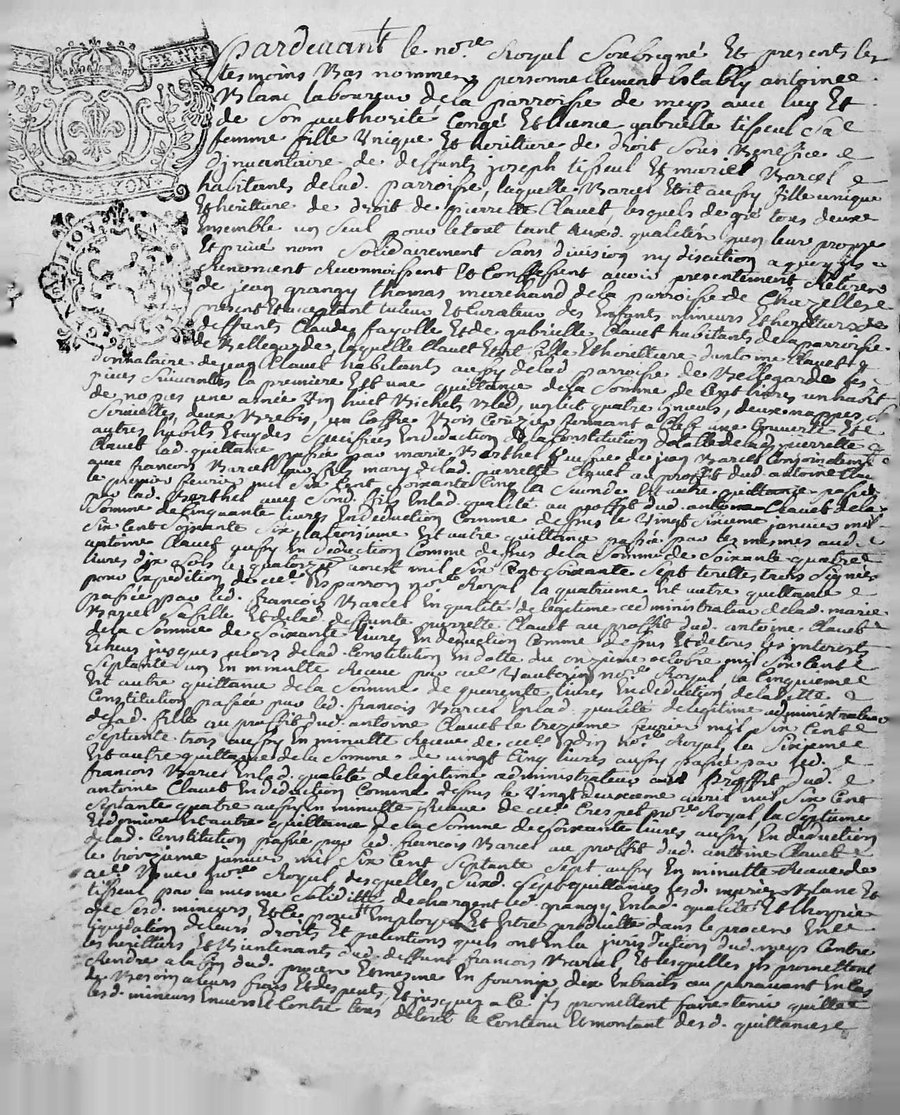 G·D·LYON
Pardevant le no.re Royal Soubsigné Et presents les
tesmoins Bas nommes personnellement Estably antoine
Blanc laboureur de la parroisse de meys avec luy Et
de Son authorite Congé Et licence gabrielle tisseul Sa
femme fille Unique Et heritiere de droit Sous Benefice
D'jnvantaire de deffunts joseph tisseul Et Barcel
habitants delad. parroisse, laquelle Barcel Etoit aussy fille unique
Et heritiere de droit de pierrette Clavel, lesquels de gré tous deux
Ensemble un Seul pour le tout tant auxd. qualités qu'en leur propre
Et privé nom Solidairement Sans division ny discution a quoy ils
Renoncent Reconnoissent Et Confessent avoir presentement Retiré
de jean grangy thomas marchand dela parroisse de Chazelles
present Et acceptant tuteur Et Curateur des Enfants mineurs Et heritiers de
deffunts Claude fayolle Et de gabrielle Clavel habitants dela parroisse
de Bellegarde, laquelle Clavel Etoit fille Et heritiere d'antoine Clavel
donnataire de jean Clavel habitants aussy delad. parroisse de Bellegarde les
pieces Suivantes la premiere Est une quittance dela Somme de Cent livres un habit
de nopces une année huit Bichets bled, un lict quatre deux nappes
Serviettes, deux Brebis, un Coffre Bois fermant a Clef une Couverte
autres habits Et Specifiées En deduction dela Constitution delad. pierrette
Clavel lad. quittance passée par marie Berthet de jean Barcel Conjointement
que francois Barcel Son fils mary delad. pierrette Clavel au proffit dud. antoine
le premier fevrier mil Six Cent Soixante Cinq la Seconde Est autre quittance passée
par lad. Berthet avec Sond. fils En lad. qualité au proffit dud. antoine Clavel dela
Somme de Cinquante livres En deduction Comme dessus le Vingt Sixieme janvier mil
Six Cent Soixante Six la troisieme Est autre quittance passée par les mesmes aud.
antoine Clavel aussy En deduction Comme dessus dela Somme de Soixante quatre
livres dix Sols le quatorze aoust mil Six Cent Soixante Sept Signées
pour Expedition parron no.re Royal la quatrieme Est autre quittance
passée par led. francois Barcel En qualité de legitime administrateur delad. marie
Barcel Sa fille Et delad. deffunte pierrette Clavel au proffit dud. antoine Clavel
dela Somme de Soixante livres En deduction Comme dessus Et de tous les interests
Echeus jusques alors delad. Constitution En dotte du onzieme octobre mil Six Cent
Septante un En minutte Receue par no.re Royal la Cinquieme
Est autre quittance dela Somme de quarente livres En deduction delad.
Constitution passée par led. francois Barcel En lad. qualité de legitime administrateur
delad. fille au proffit dud. antoine Clavel le treizieme fevrier mil Six Cent
Septante trois aussy En minutte Receue de no.re Royal la Sixieme
Est autre quittance dela Somme de vingt Cinq livres aussy passée par led.
francois Barcel En lad. qualité de legitime administrateur au Proffit dud.
antoine Clavel En deduction Comme dessus le Vingt deuxieme avril mil Six Cent
Septante quatre aussy En minutte Receue de Crespet no.re Royal la Septieme
Et derniere Est autre quittance dela Somme de Soixante livres aussy En deduction
delad. Constitution passée par led. francois Barcel au proffit dud. antoine Clavel
le troizieme janvier mil Six Cent Septante Sept aussy En minutte Receue de
no.re Royal, desquelles Susd. Sept quittances lesd. mariés Blanc Et
tisseul par la mesme Solidité dechargent led. grangy En lad. qualité Et
de Sesd. mineurs, Et le pour Employer Et Estre produitte dans le proces En
liquidation de leurs droits Et pretentions quils ont En la jurisdiction dud. meys Contre
les heritiers Et Bientenants dud. deffunt francois Barcel Et lesquelles jls promettent
Rendre a la fin dud. proces Et mesme En fournir des Extraits auparavant En Cas
de Besoin a leurs frais Et despens, Et jusques a Ce jls promettent faire tenir quittes
lesd. mineurs Envers Et Contre tous le Contenu Et montant desd. quittances